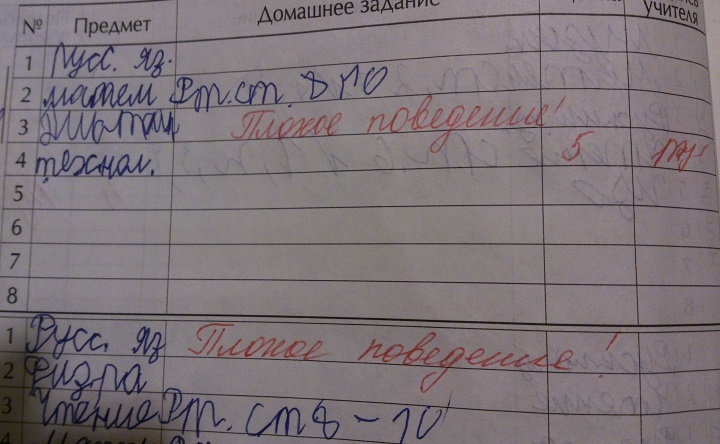 № Предмет Домашнее задание учителя
1 Русс. яз.
2 матем Рт. ст. 8 №10
3 Плохое поведение!
4 технол. 5
5
6
7
8
1 Русс. яз Плохое поведение!
2 Физра
3 Чтение Рт. ст 8 - 10